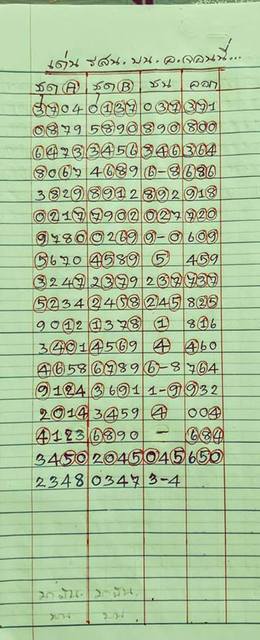 เด่น รสน. บน. อ.จอนนี่...
ชุด A ชุด B ชน ออก
3704 0137 037 371
0879 5890 890 800
6473 3456 346 364
8067 4689 6-8 686
3829 8912 892 918
0217 7902 027 720
9780 0269 9-0 609
5670 4589 5 459
3247 2379 237 737
5234 2458 245 825
9012 1378 1 816
3401 4569 4 460
4658 6789 6-8 764
9124 3691 1-9 932
2014 3459 4 004
4123 6890 - 684
3450 2045 045 650
2348 0347 3-4